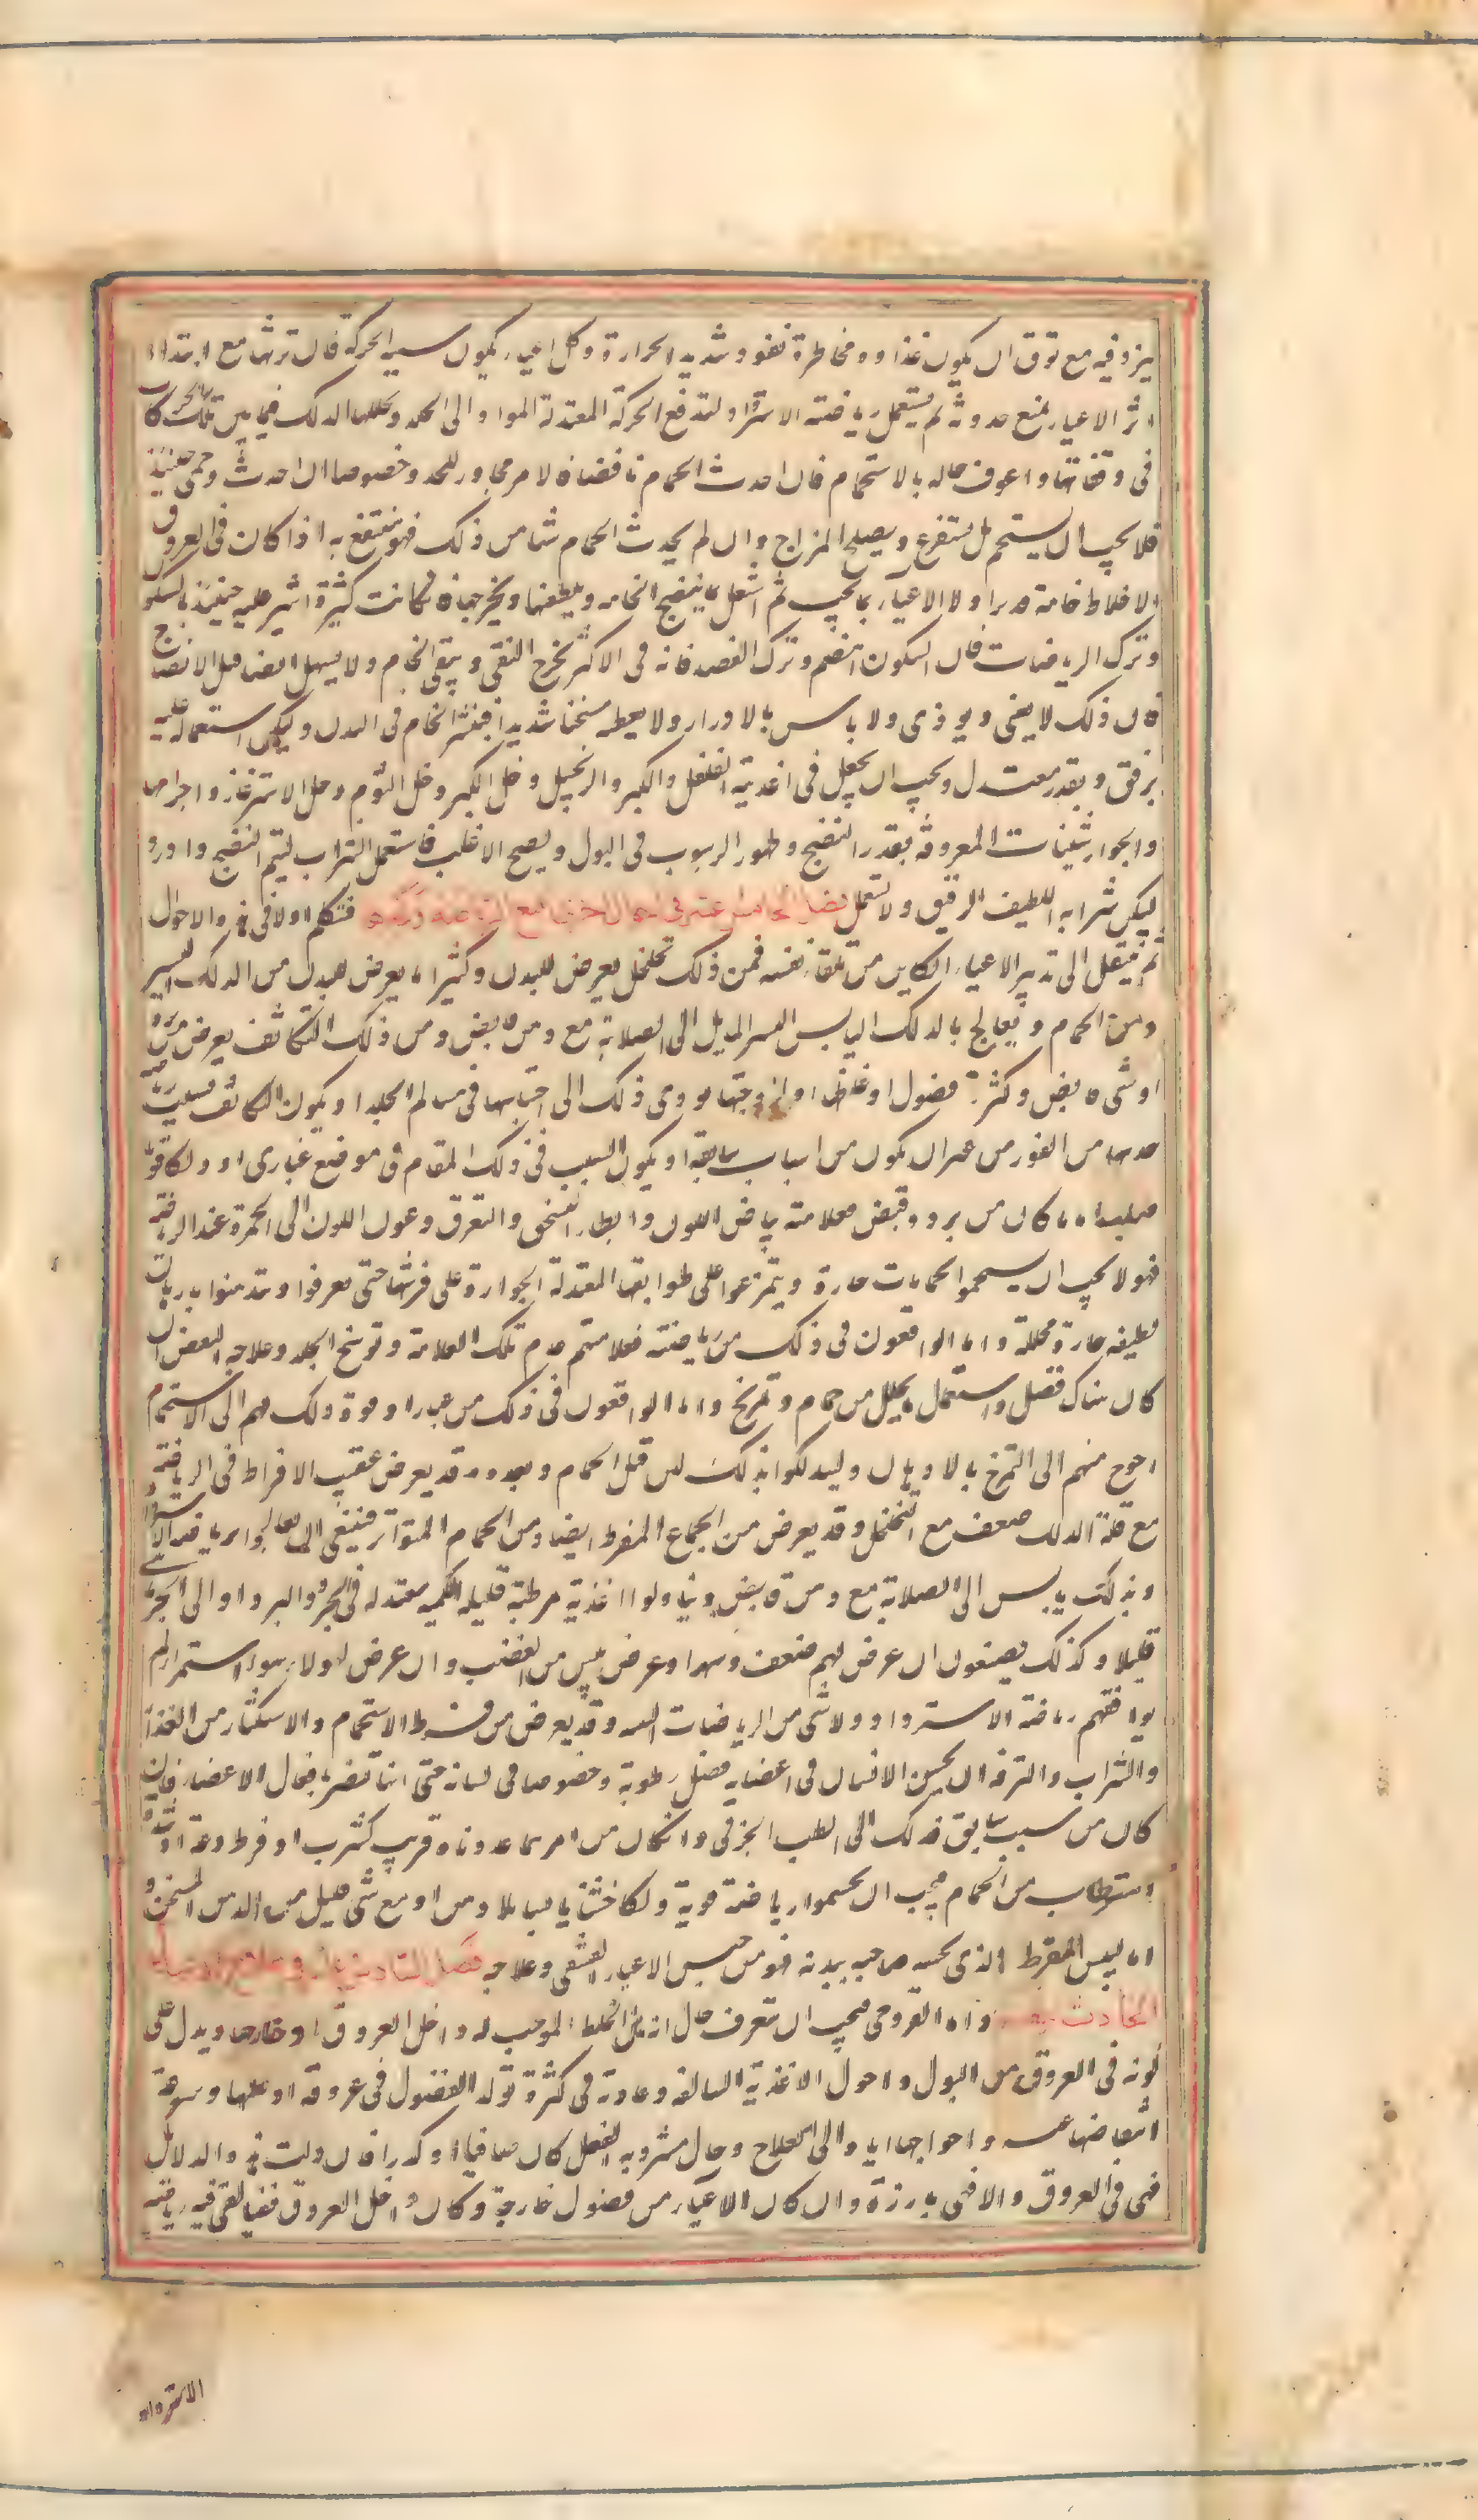 يزد فيه مع توق ان يكون غذاوه ومخاطرة نفوه وشديد الحرارة وكل اعياء يكون سيد الحركة فان ترشها مع ابتداء
اثر الاعياء يمنع حدوثه ثم يستعمل رياضة الاسترداد لتدفع الحركة المعتدلة المواد الى الجلد ويحللها الدلك فيما بين تلك الحركات
في وقفاتها واعرف حاله بالاستحمام فان احدث الحمام نافضا فالامر مجاوز للحد وخصوصا ان احدث حمى حينئذ
فلا يجب ان يستحم بل يستفرغ ويصلح المزاج وان لم يحدث الحمام شيا من ذلك فهو ينتفع به اذا كان في العروق
الاخلاط خامة دبر اولا الاعياء بما يجب ثم اشتغل بما ينضج الخامة ويلطفها ويخرجها فان كانت كثيرة اشير عليه حينئذ بالسكون
وترك الرياضات فان السكون اهضم وترك الفصد فانه في الاكثر يخرج النقي ويبقي الخام ولا يسهل ايضا قبل الانضاج
فان ذلك لا يغني ويوذي ولا باس بالادرار ولا يعطه مسخنا شديدا فينشر الخام في البدن وليكن استعماله عليه
برفق وبقدر معتدل ويجب ان يجعل في اغذيته الفلفل والكبر والزنجبيل وخل الكبر وخل الثوم وخل الاشترغاز واجرامها
والجوارشينات المعروفة بقدر النضج وظهور الرسوب في البول ويصح الاغلب فاستعمل الشراب ليتم النضج وادرو
ليكن شرابه اللطيف الرقيق ولا تستعمل فصل الخامس عشر في احوال اخرى تتبع الرياضة فنتكلم اولا في هذه الاحوال
ثم ننتقل الى تدبير الاعياء الكاين من تلقاء نفسه فمن ذلك تخلخل يعرض للبدن وكثيرا ما يعرض للبدن من الدلك اليسير
ومن الحمام ويعالج بالدلك اليابس اليسير المايل الى الصلابة مع دهن قابض ومن ذلك التكاثف يعرض من برد
او شي قابض وكثرة فضول او غلظها او لزوجتها يودي ذلك الى احتباسها في مسام الجلد او يكون التكاثف بسبب رياضة
جذبتها من الغور من غير ان يكون من اسباب سابقة او يكون السبب في ذلك المقام في موضع غباري او دلكا قويا
صلبا اما ما كان من برد وقبض فعلامته بياض اللون وابطاء التسخن والتعرق وعود اللون الى الحمرة عند الرياضة
فهولا يجب ان يستحموا بحمامات حارة ويتمرغوا على طوابقها المعتدلة الحرارة على فرشها حتى يعرقوا وتدهنوا بادهان
لطيفة حارة محللة واما الواقعون في ذلك من رياضة فعلامتهم عدم تلك العلامة وتوسخ الجلد وعلاجه النفض ان
كان هناك فضل واستعمال ما يحلل من حمام وتمريخ واما الواقعون في ذلك من غبار او قوة دلك فهم الى الاستحمام
احوج منهم الى التمريخ بالادهان وليدلكوا بدلك لين قبل الحمام وبعده وقد يعرض عقيب الافراط في الرياضة
مع قلة الدلك ضعف مع التخلخل وقد يعرض من الجماع المفرط ايضا ومن الحمام المتواتر فينبغي ان يعالجوا برياضة الاسترداد
وبدلك يابس الى الصلابة مع دهن قابض ويناولوا اغذية مرطبة قليلة الكمية معتدلة في الحر والبرد او الى الحر
قليلا وكذلك يصنعون ان عرض لهم ضعف وسهر او عرض يبس من الغضب وان عرض لهولاء سوء استمراء لم
يوافقهم رياضة الاسترداد ولا شي من الرياضات البتة وقد يعرض من فرط الاستحمام والاستكثار من الغذاء
والشراب والترفه ان يحس الانسان في اعضايه فضل رطوبة وخصوصا في لسانه حتى انها تضر بافعال الاعضاء فان
كان من سبب سابق فذلك الى الطب الجزئي وان كان من امر مما عددناه قريب كشرب او فرط دعة او
استرطاب من الحمام فيجب ان يجشموا رياضة قوية ودلكا خشنا يابسا بلا دهن او مع شي قليل من الدهن المسخن و
اما اليبس المفرط الذي يحسه صاحبه ببدنه فهو من جنس الاعياء القشفي وعلاجه فصل السادس عشر في علاج الاعياء
الحادث بنفسه واما القروحي فيجب ان تتعرف حال انه هل الخلط الموجب له داخل العروق او خارجها ويدل على
كونه في العروق نتن البول واحوال الاغذية السالفة وعادته في كثرة تولد الفضول في عروقه او قلتها وسرعة
انتفاضها عنه واحواجها اياه الى العلاج وحال مشروبه القبل كان صافيا او كدرا فان دلت هذه الدلائل
فهي في العروق والا فهي بارزة وان كان الاعياء من فضول خارجة وكان داخل العروق نقيا كفى فيه رياضة
الاسترداد